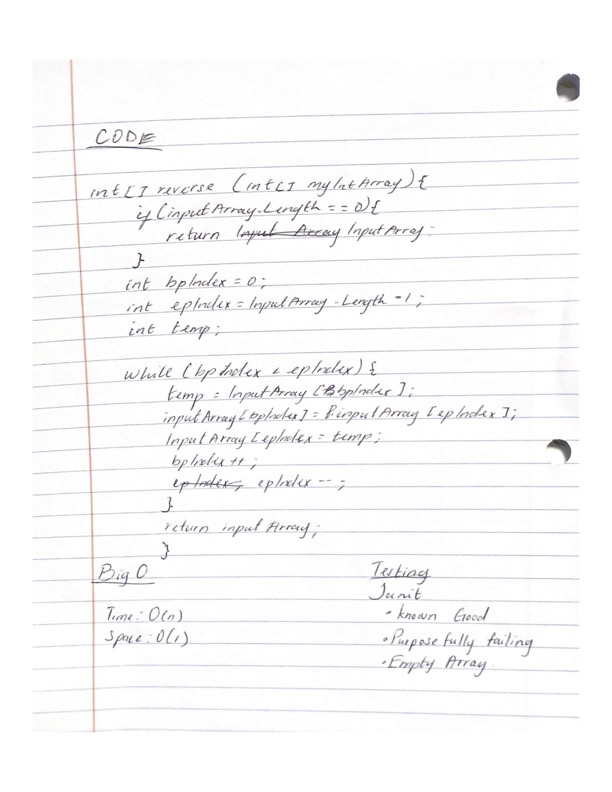 CODE
int [] reverse (int [] myIntArray) {
if (inputArray.Length == 0) {
return InputArray.
}
int bpIndex = 0;
int epIndex = InputArray.Length -1;
int temp;
while (bpIndex < epIndex) {
temp = InputArray [bpIndex];
inputArray [bpIndex] = inputArray [epIndex];
InputArray [epIndex = temp;
bpIndex ++;
epIndex --;
}
return inputArray;
}
Big O
Time: O(n)
Space: O(1)
Testing
Junit
• known Good
• Purposefully failing
• Empty Array